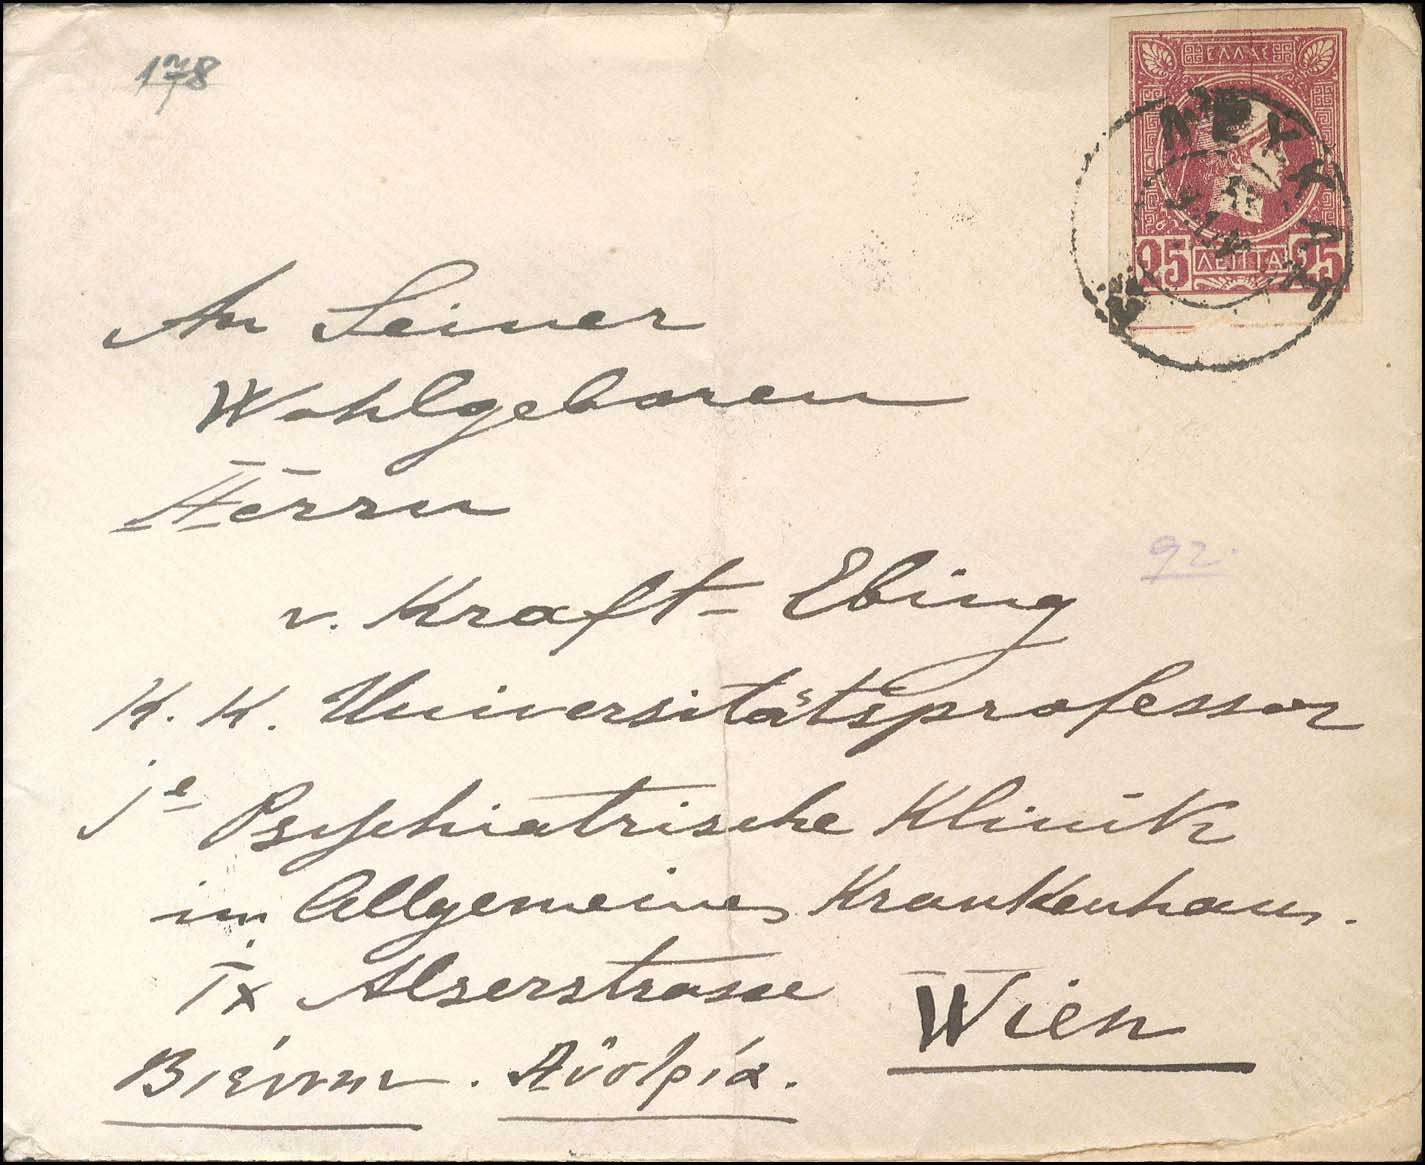 ΕΛΛΑΣ
ΛΕΥΚΑΣ
25 ΛΕΠΤΑ 25
An Seiner
Wohlgeboren
Herrn
v. Kraft-Ebing
K. K. Universitätsprofessor
92.
Psychiatrische Klinik
im Allgemeines Krankenhaus.
IX Alserstrasse
Wien
Βιέννην. Αὐστρία.